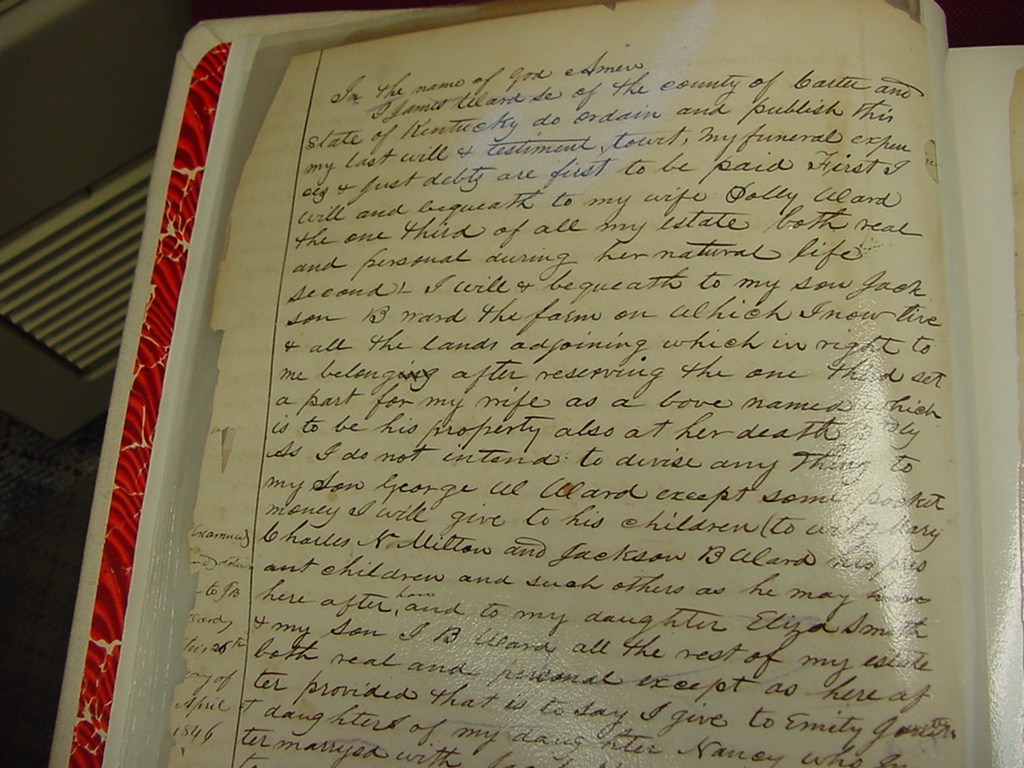 In the name of God Amen
I James Ward se of the county of Carter and
state of Kentucky do ordain and publish this
my last will & testiment, towit, my funeral expen
ces & Just debts are first to be paid First I
will and bequeath to my wife Polly Ward
the one third of all my estate both real
and personal during her natural life
second I will & bequeath to my son Jack
son B Ward the farm on Which I now live
& all the lands adjoining which in right to
me belonging after reserving the one third set
a part for my wife as a bove named which
is to be his property also at her death
As I do not intend to divise any thing to
my Son George W Ward except some pocket
money I will give to his children (to wit) Mary
Charles N Milton and Jackson B Ward his pres
ant children and such others as he may have
here after, have and to my daughter Eliza Smith
& my Son J B Ward all the rest of my estate
both real and personal except as here af
ter provided that is to say I give to Emily
t daughters of my daughter Nancy who In
termarryed with
Examined
and
to J B
Ward
this 28th
day of
April
1846